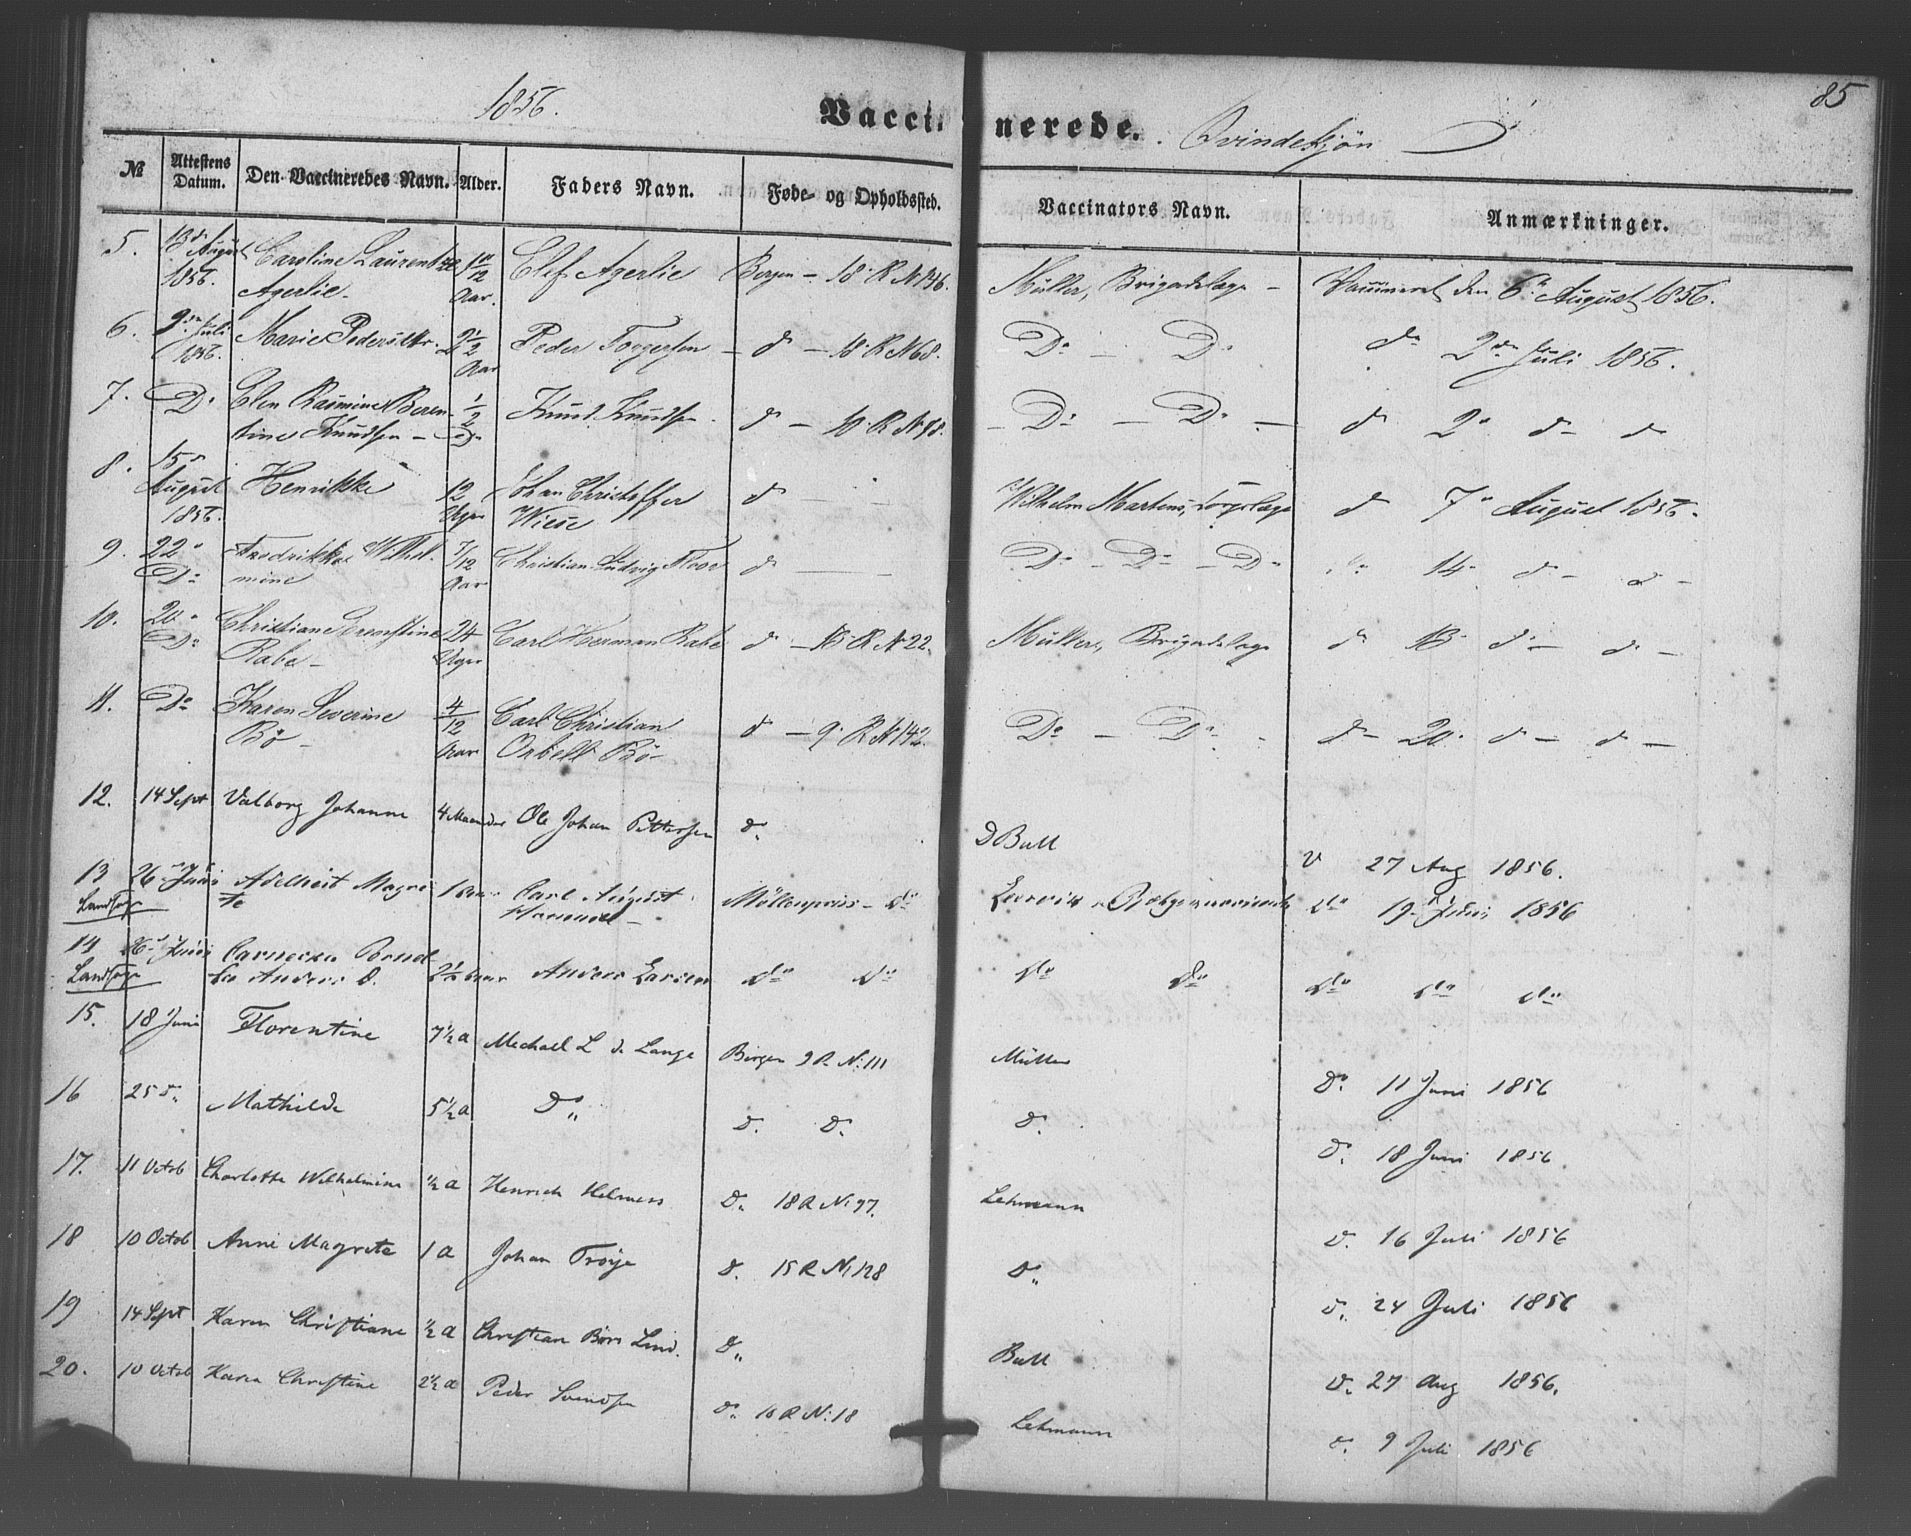 1856. Vaccinerede. Qvindekjön 85
№ Attestens Datum. Den Vaccineredes Navn. Alder. Faders Navn. Føde- og Opholdssted. Vaccinators Navn. Anmærkninger.
5. 13de August 1856. Caroline Laurentze Agerlie. 10/12 Aar. Elef Agerlie Bergen – 18. R. N 136. Müller, Brigadelæge – Vaccineret den 6te August 1856.
6. 9de Juli 1856. Marie Pedersdtr. 2 1/2 Aar Peder Torgersen – d – 18. R. N 68. Do – Do do 2den Juli 1856.
7. Do Elen Rasmine Berentine Knudsen – 1/2 Do Knud Knudsen. d – 10. R. N 98. – Do – Do – do 2n do do
8. 15n August 1856. Henrikke 12 Uger Johan Christoffer Wiese d – Wilhelm Martens, Corpslæge d 7n August 1856.
9. 22n Do Fredrikke Wilhelmine 7/12 Aar Christian Ludvig Floor d – Do – Do – Do do 14 d – d –
10. 20n Do Christiane Ernestine Rabe – 24 Uger Carl Herman Rabe d – 13. R. N 22. Müller, Brigadelæge d 13 d – d –
11. Do Karen Severine Bö – 4/12 Aar Carl Christian Bö – d – 9. R. N 142. Do – Do d – 20. d – d –
12. 14 Sept Valborg Johanne 4 Maaneder Ole Johan Pettersen do D Bull V 27 Aug 1856.
13 26 Juni Adelheit Magrete 1 Aar Carl August Möllenpriis – do do 19 Juni 1856
14 26 Juni Anders D. 2 1/2 aar Anders Larsen do do do do do do do
15. 18 Juni Florentine 7 1/2 a Michael L de Lange Bergen 9 R N: 111 Müller Do 11 Juni 1856
16 25 do Mathilde 5 1/2 a Do do do do do 18 Juni 1856
17. 11 Octob Charlotte Wilhelmine 1/2 a Henrich Helmers do 18 R N: 97. Lehmann do 16 Juli 1856
18 10 Octob Anne Magrete 1 a Johan Tröye do 15 R N: 128 do do 24 Juli 1856
19 14 Sept Karen Christiane 1/2 a Christian Börs Lind. do Bull do 27 Aug 1856.
20. 10 Octob Karen Christine 2 1/2 a Peder Svendsen do 10 R N: 18 Lehmann do 9 Juli 1856